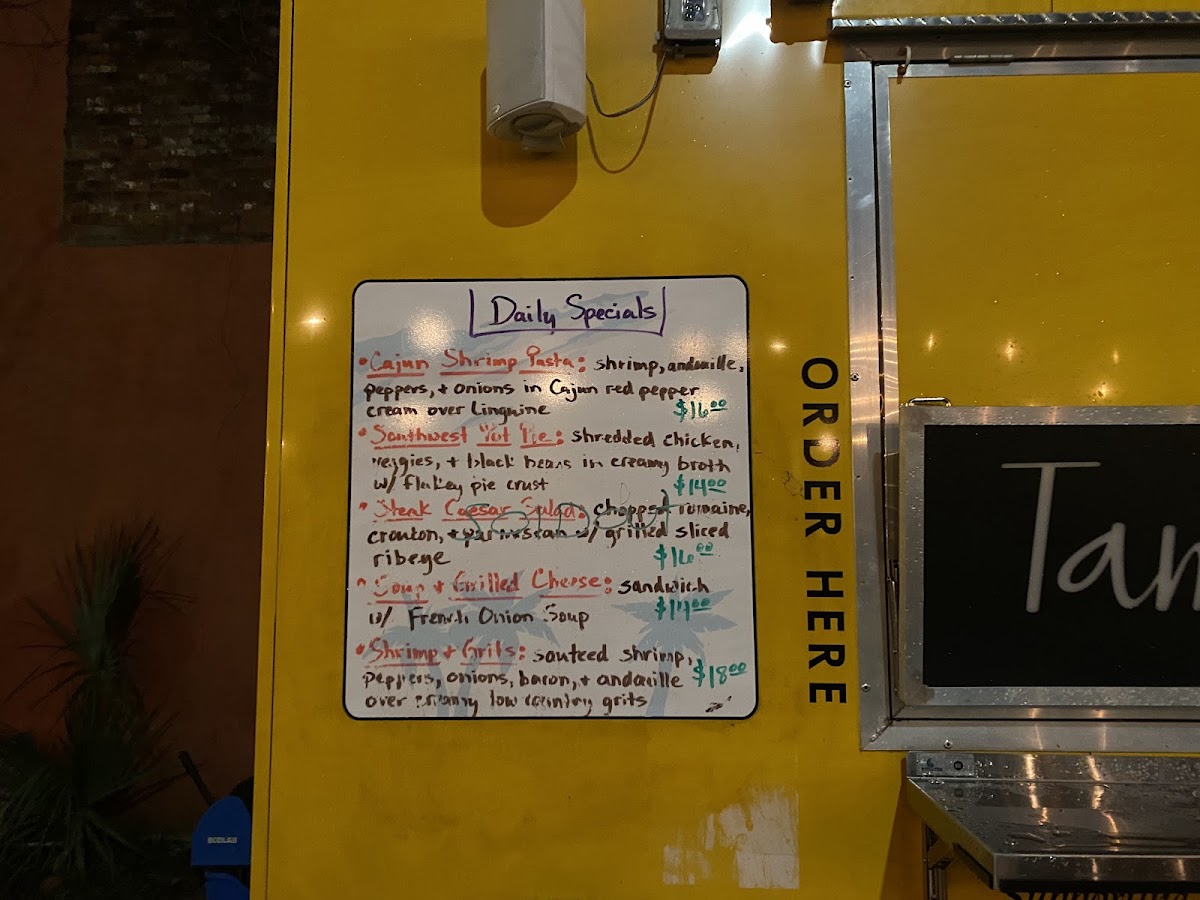 Daily Specials
• Cajun Shrimp Pasta: shrimp, andouille,
peppers, + onions in Cajun red pepper
cream over Linguine $16.00
• Southwest Pot Pie: shredded chicken,
veggies, + black beans in creamy broth
w/ flakey pie crust $14.00
• Steak Caesar Salad: chopped romaine,
SOLD OUT
crouton, + parmesan w/ grilled sliced
ribeye $16.00
• Soup + Grilled Cheese: sandwich
w/ French Onion Soup $14.00
• Shrimp + Grits: sauteed shrimp,
peppers, onions, bacon, + andouille $18.00
over creamy low country grits
ORDER HERE
Tam